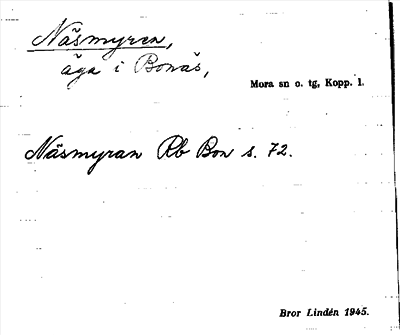 Näsmyren,
äga i Bonäs,
Mora sn o. tg, Kopp. l.
Näsmyran Rb Bon s. 72.
Bror Lindén 1945.